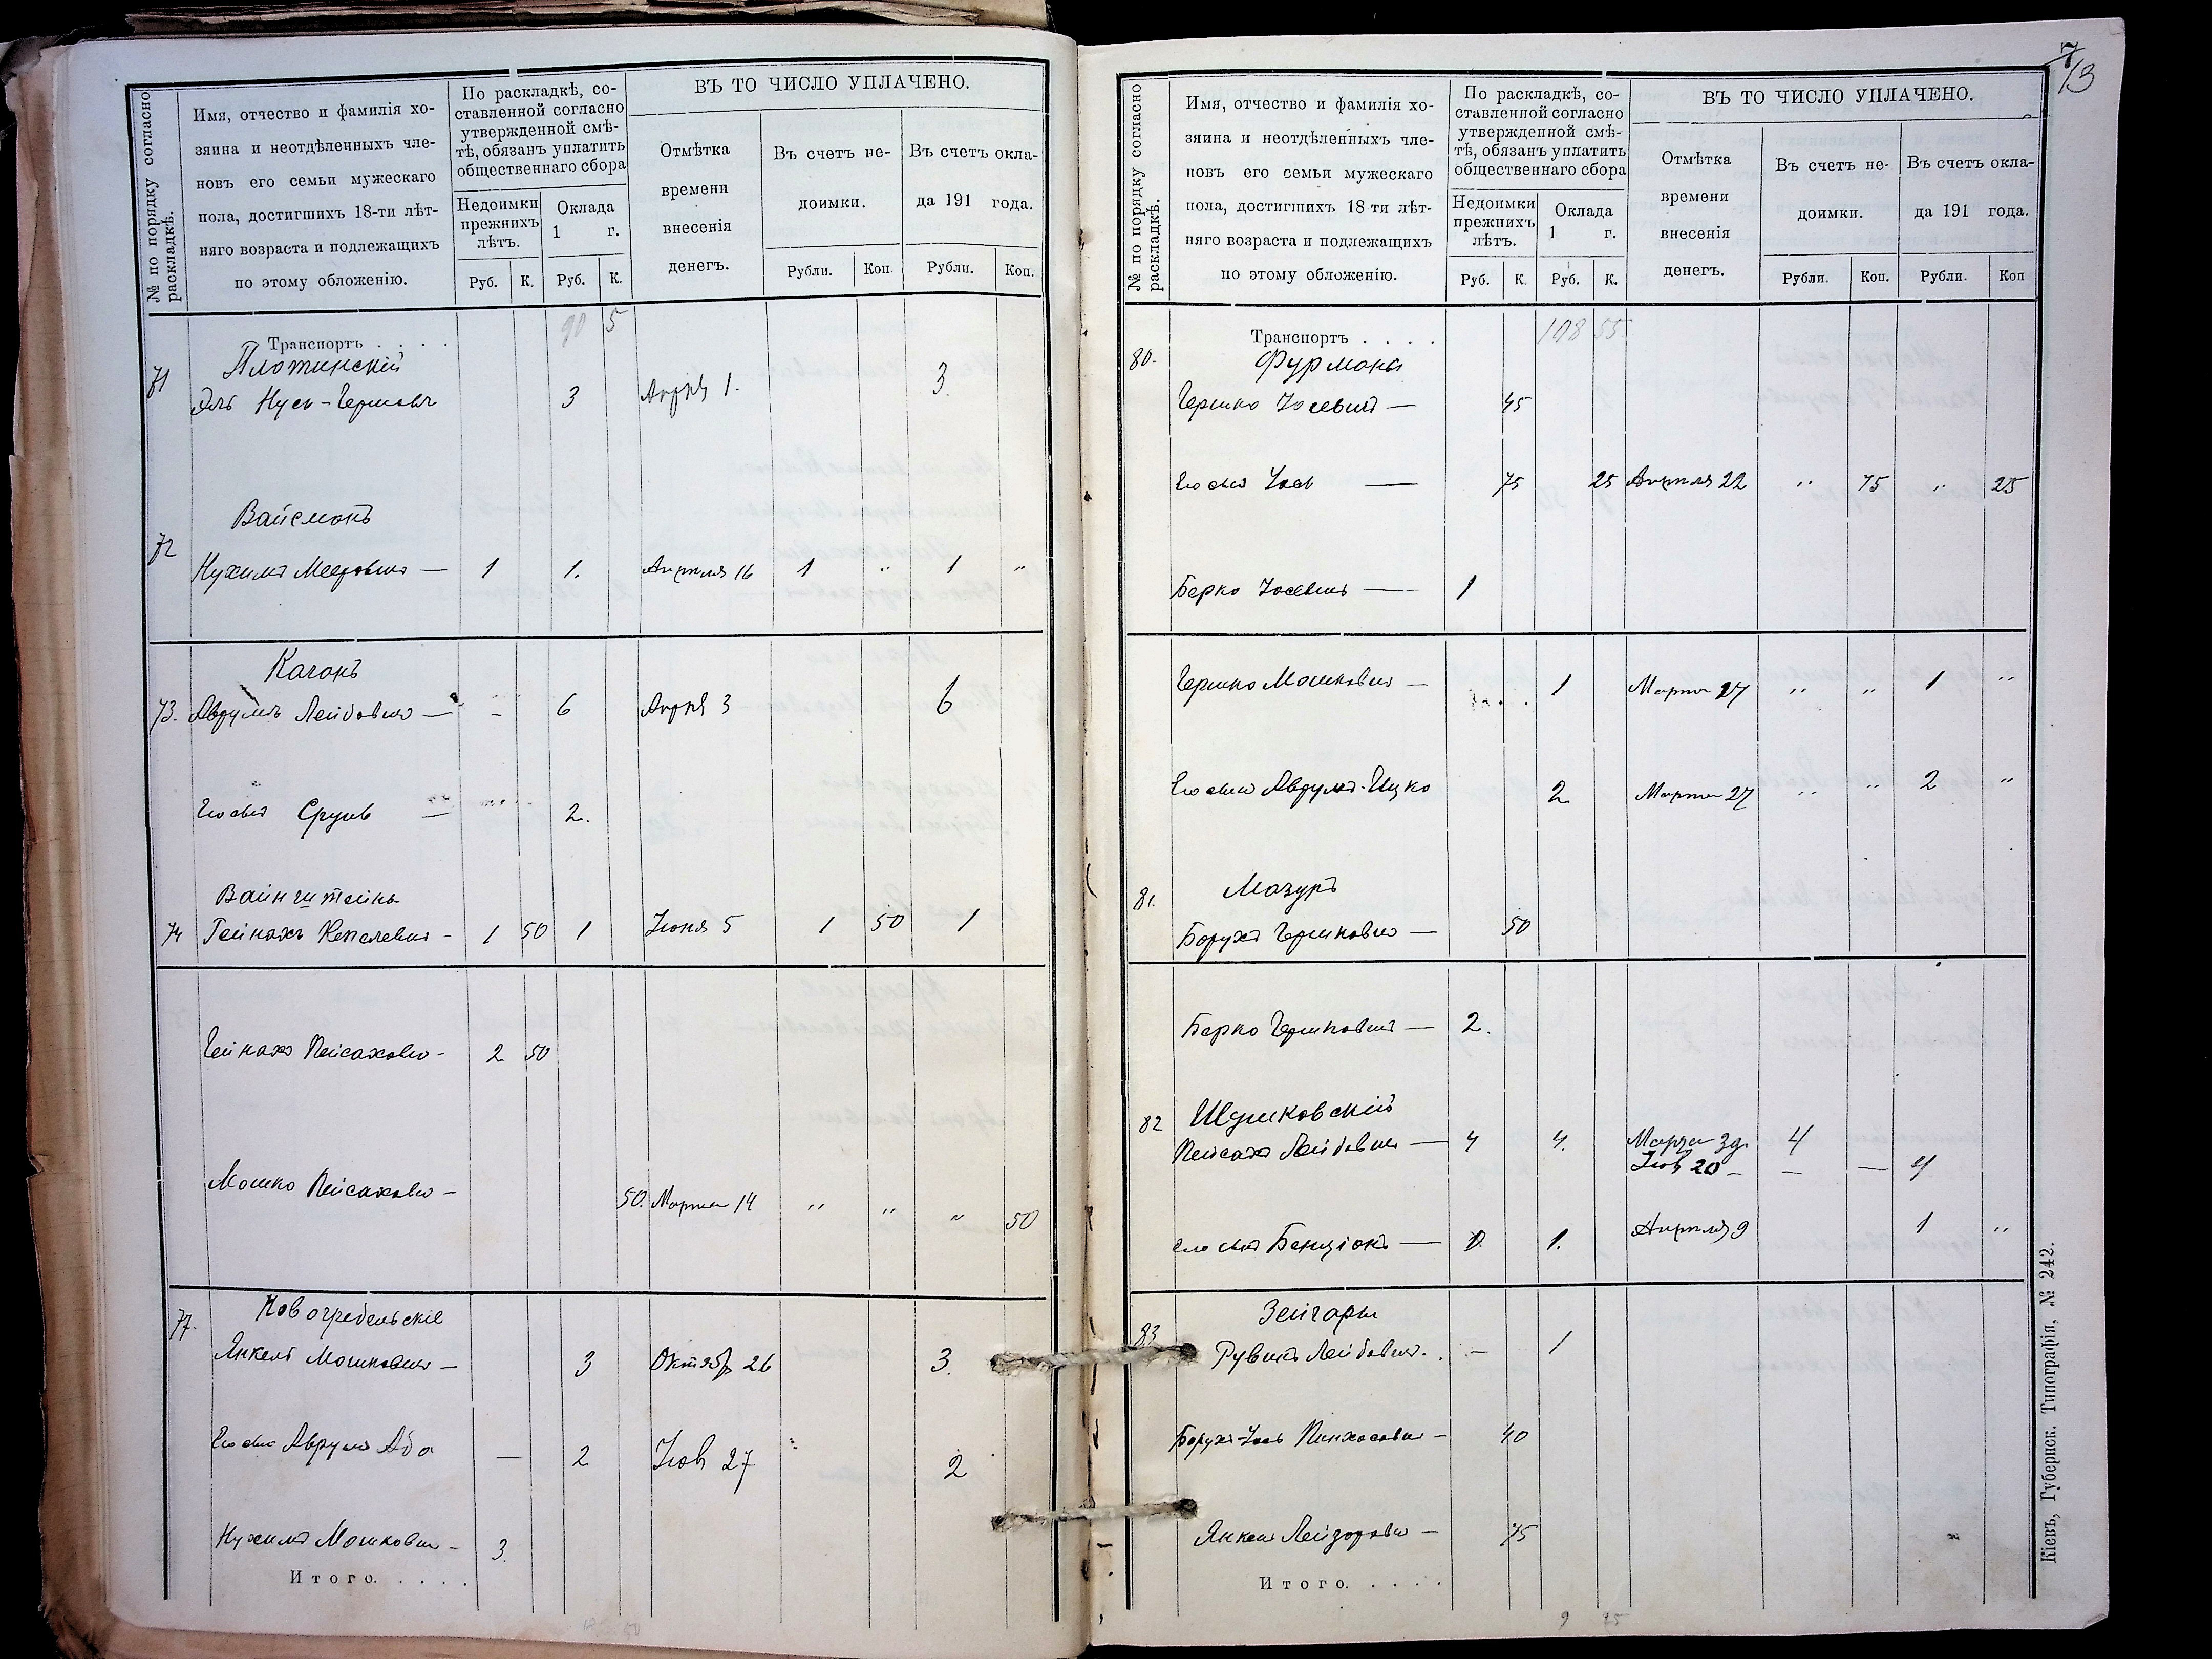 № по порядку согласно раскладкѣ.
Имя, отчество и фамилія хо-
зяина и неотдѣленныхъ чле-
новъ его семьи мужескаго
пола, достигшихъ 18-ти лѣт-
няго возраста и подлежащихъ
по этому обложенію.
По раскладкѣ, со-
ставленной согласно
утвержденной смѣ-
тѣ, обязанъ уплатить
общественнаго сбора
Недоимки
прежнихъ
лѣтъ.
Оклада
1 г.
Руб. К. Руб. К.
ВЪ ТО ЧИСЛО УПЛАЧЕНО.
Отмѣтка
времени
внесенія
денегъ.
Въ счетъ не-
доимки.
Въ счетъ окла-
да 191 года.
Рубли. Коп. Рубли. Коп.
Транспортъ . . . . 90 5
Плотинскій
71 Эль Нусн-Гершовъ 3 Апрѣ 1. 3
Вайсманъ
72 Нухимъ Мееровичъ — 1 1. Апрѣля 16 1 " 1 "
Каганъ
73. Аврумъ Лейбовичъ — - 6 Апрѣ 3 6
Его сынъ Сруль — 2.
Вайнштейнъ
74 Гейнахъ Кепелевич - 1 50 1 Іюня 5 1 50 1
Гейнахъ Пейсахович - 2 50
Мошко Пейсахович - 50. Марта 14 " " " 50
77. Новогребельскіе
Янкель Мошкович — 3 Октяб 26 3.
Его сынъ Аврумъ Аба — 2 Іюл 27 2
Нухимъ Мошкович - 3.
Итого. . . . .
73
№ по порядку согласно раскладкѣ.
Имя, отчество и фамилія хо-
зяина и неотдѣленныхъ чле-
новъ его семьи мужескаго
пола, достигшихъ 18 ти лѣт-
няго возраста и подлежащихъ
по этому обложенію.
По раскладкѣ, со-
ставленной согласно
утвержденной смѣ-
тѣ, обязанъ уплатить
общественнаго сбора
Недоимки
прежнихъ
лѣтъ.
Оклада
1 г.
Руб. К. Руб. К.
ВЪ ТО ЧИСЛО УПЛАЧЕНО.
Отмѣтка
времени
внесенія
денегъ.
Въ счетъ не-
доимки.
Въ счетъ окла-
да 191 года.
Рубли. Коп. Рубли. Коп
Транспортъ . . . . 108 55
80. Фурманы
Гершко Іосевичъ — 45
Его сынъ Іось — 75 25 Апрѣля 22 " 75 " 25
Берко Іосевичъ — 1
Гершко Мошкович — 1 Марта 27 " " 1 "
Его сынъ Аврумъ-Ицко 2 Марта 27 " " 2 "
Мазуръ
81. Борухъ Гершкович — 50
Берко Гершкович — 2.
82 Шушковскій
Пейсахъ Лейбович — 4 4. Марта 4
20 — — — 4
его сынъ Бенціонъ — 1. Апрѣля 9 1 "
Зейгары
83 Рувинъ Лейбович. - 1
Борухъ-Іось Пинхасович - 40
Янкель Лейзорович - 75
Итого. . . . .
Кіевъ, Губернск. Типографія, № 242.